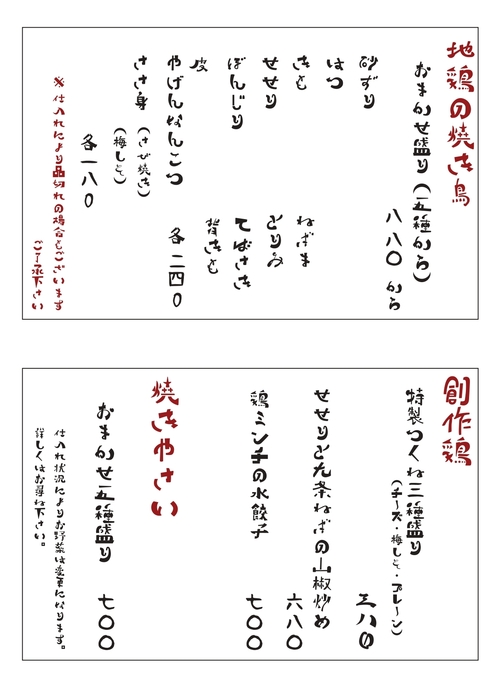 地鶏の焼き鳥
おまかせ盛り（五種から）
八八〇から
砂ずり
はつ
きも
せせり
ぼんじり
皮
やげんなんこつ
ささ身
（さび焼き）
（梅しそ）
各一八〇
ねぎま
とりみ
てばさき
背ぎも
各二四〇
※仕入れにより品切れの場合もございます
ご了承下さい
創作鶏
特製つくね三種盛り
（チーズ・梅しそ・プレーン）
三八〇
せせりと九条ねぎの山椒炒め
六八〇
鶏ミンチの水餃子
七〇〇
焼きやさい
おまかせ五種盛り
七〇〇
仕入れ状況によりお野菜は変更になります。
詳しくはお尋ね下さい。